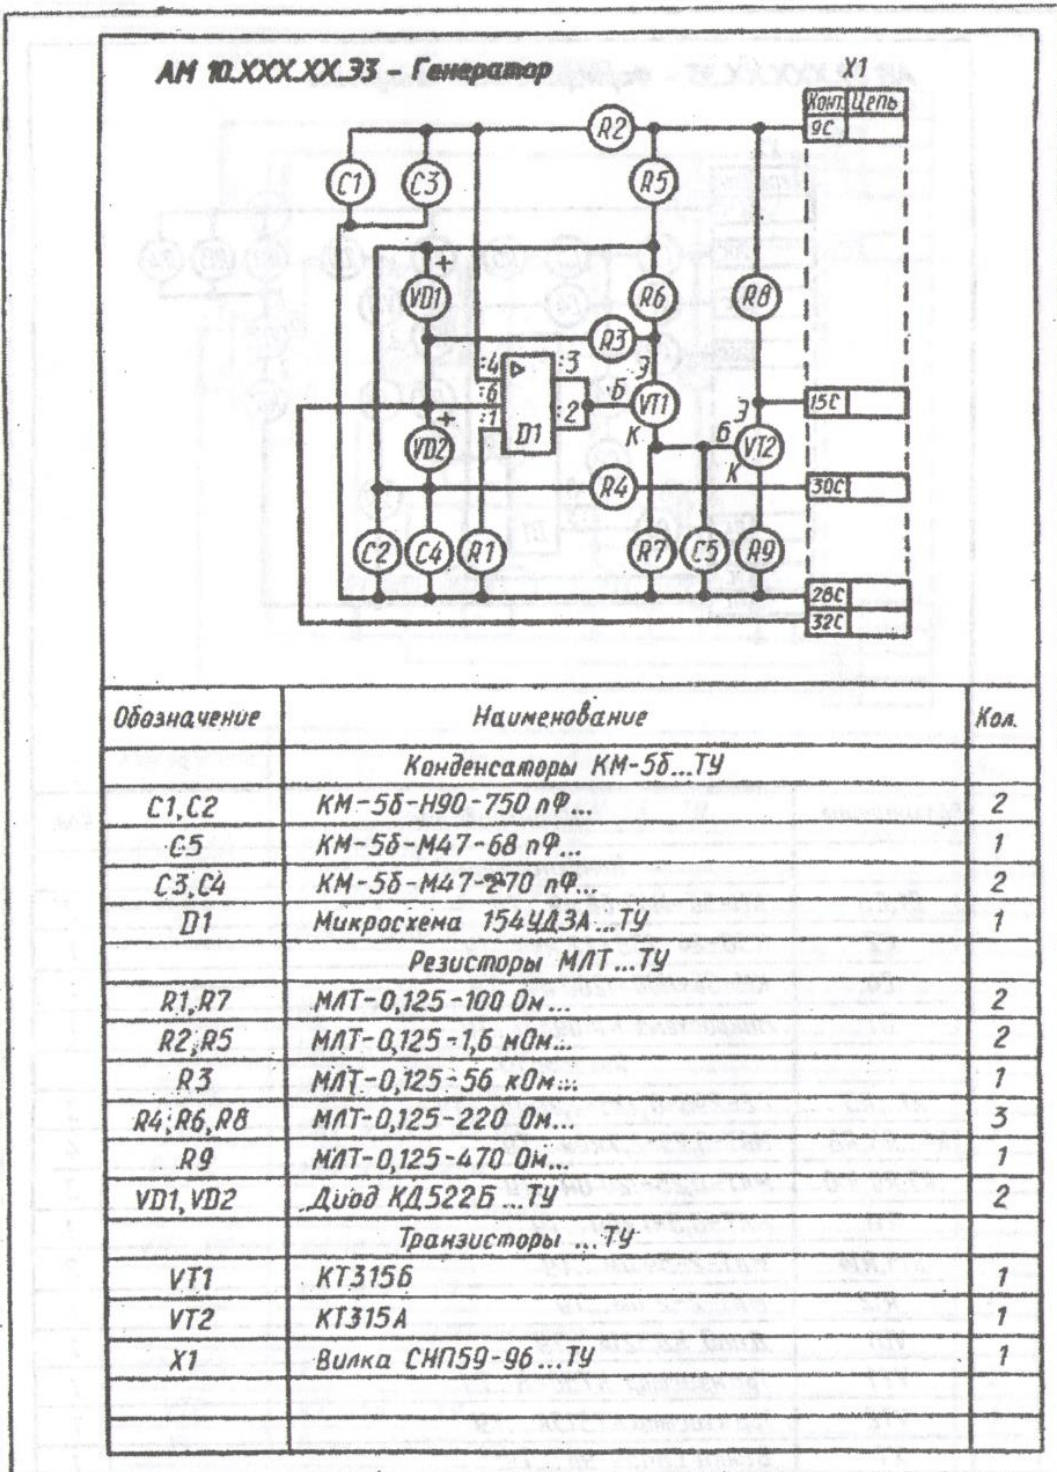 АМ 10.ХХХ.ХХ.ЭЗ - Генератор
X1
Конт. Цепь
9С
R2
C1 C3 R5
+
VD1 R6 R8
R3
:4 :3 Э
:6 Б VT1
15С
+ :1 :2 Э
VD2 D1 К Б VT2
К
R4 30С
C2 C4 R1 R7 C5 R9
28С
32С
Обозначение Наименование Кол.
Конденсаторы КМ-5б...ТУ
C1,C2 КМ-5б-Н90-750 пФ... 2
C5 КМ-5б-М47-68 пФ... 1
C3,C4 КМ-5б-М47-270 пФ... 2
D1 Микросхема 154УД3А...ТУ 1
Резисторы МЛТ...ТУ
R1,R7 МЛТ-0,125-100 Ом... 2
R2,R5 МЛТ-0,125-1,6 мОм... 2
R3 МЛТ-0,125-56 кОм... 1
R4,R6,R8 МЛТ-0,125-220 Ом... 3
R9 МЛТ-0,125-470 Ом... 1
VD1,VD2 Диод КД522Б...ТУ 2
Транзисторы ...ТУ
VT1 КТ315б 1
VT2 КТ315А 1
X1 Вилка СНП59-96...ТУ 1